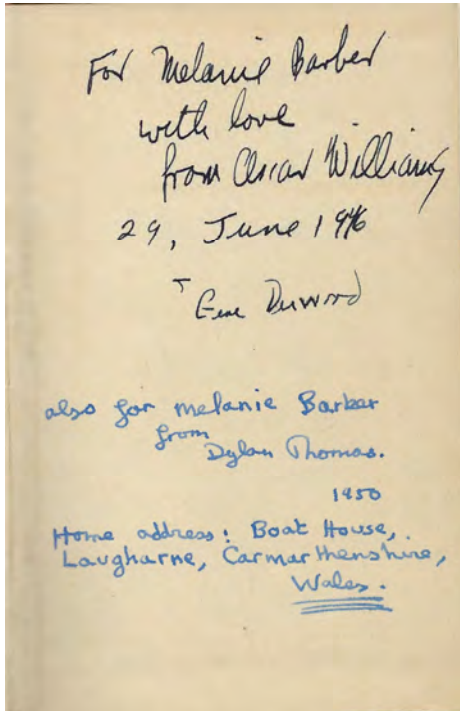 For Melanie Barber
with love
from Oscar Williams
29, June 1946
+ Gene Derwood
also for Melanie Barber
from
Dylan Thomas.
1950
Home address: Boat House,
Laugharne, Carmarthenshire,
Wales.